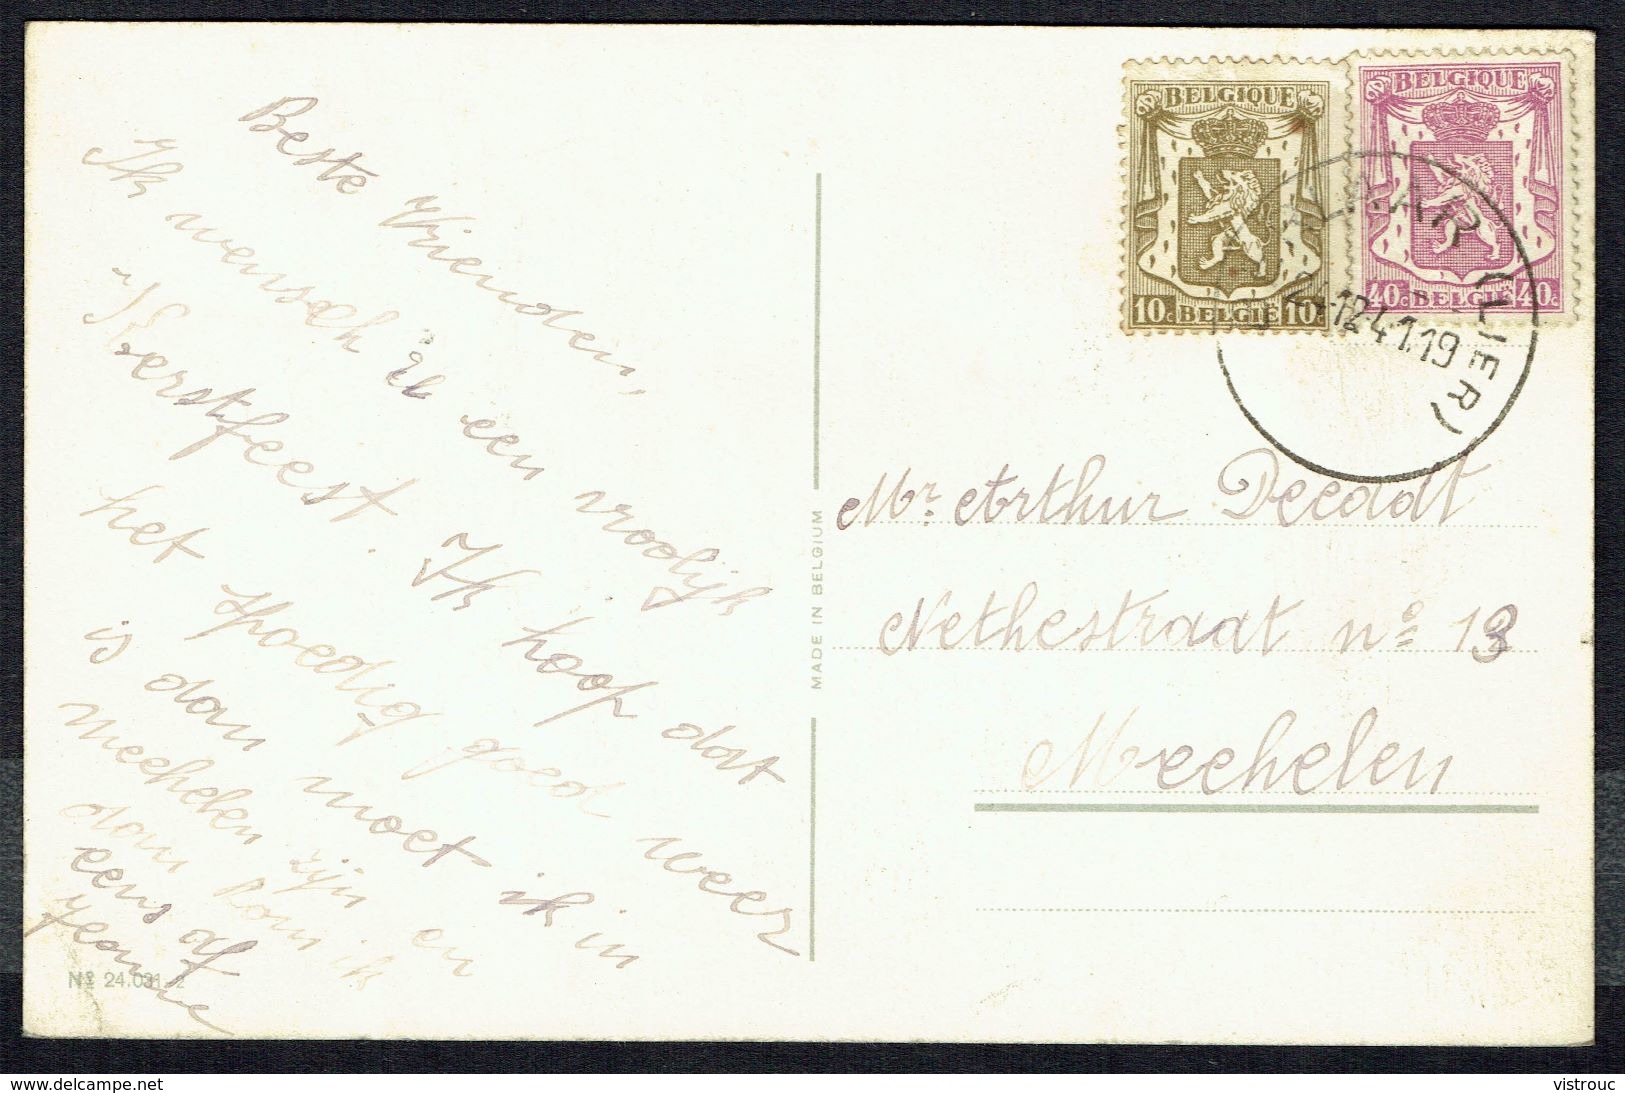 Beste Vrienden,
Ik wensch U een vroolijk
Kerstfeest. Ik hoop dat
het spoedig goed weer
is dan moet ik in
Mechelen zijn en
dan kom ik
eens af
Jeanne
Nº 24.031
MADE IN BELGIUM
BELGIQUE
10c BELGIË 10c
BELGIQUE
40c BELGIË 40c
KLAAR (LIER)
24.12.41.19
Mr. Arthur
Nethestraat nº 13
Mechelen
delcampe.net
vistrouc